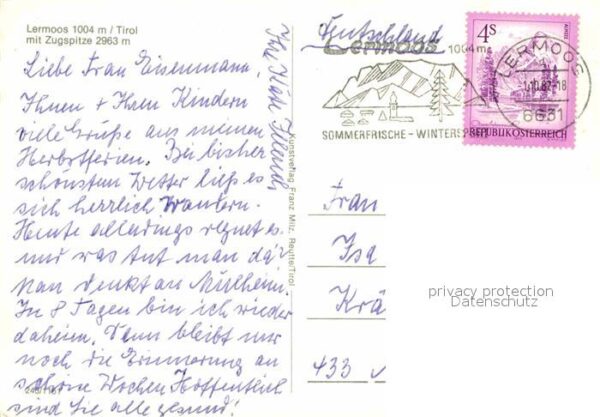 Lermoos 1004 m / Tirol
mit Zugspitze 2963 m
Liebe Frau Eisenmann,
Ihnen + Ihren Kindern
viele Grüße aus meinen
Herbstferien. Bei bisher
schönsten Wetter ließ es
sich herrlich wandern.
Heute allerdings regnet es
und was tut man da?
Man denkt an Mülheim.
In 8 Tagen bin ich wieder
daheim. Dann bleibt nur
noch die Erinnerung an
schöne Wochen. Hoffentlich
sind Sie alle gesund!
Ihre
Kunstverlag Franz Milz, Reutte/Tirol
Deutschland
Lermoos 1004 m
SOMMERFRISCHE - WINTERSPORT
4S
REPUBLIK ÖSTERREICH
LERMOOS
6631
Frau
Isa
Krä
433
privacy protection
Datenschutz